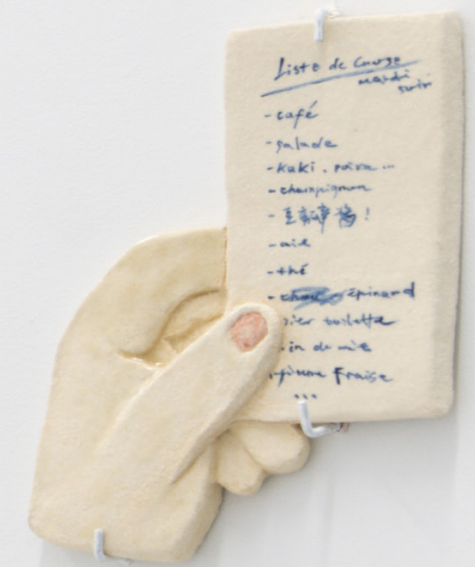 Liste de Course
mardi
soir
- café
- salade
- kaki, poire...
- champignon
- 豆瓣酱!
- thé
- épinard
pier toilette
in de mie
Fraise
...